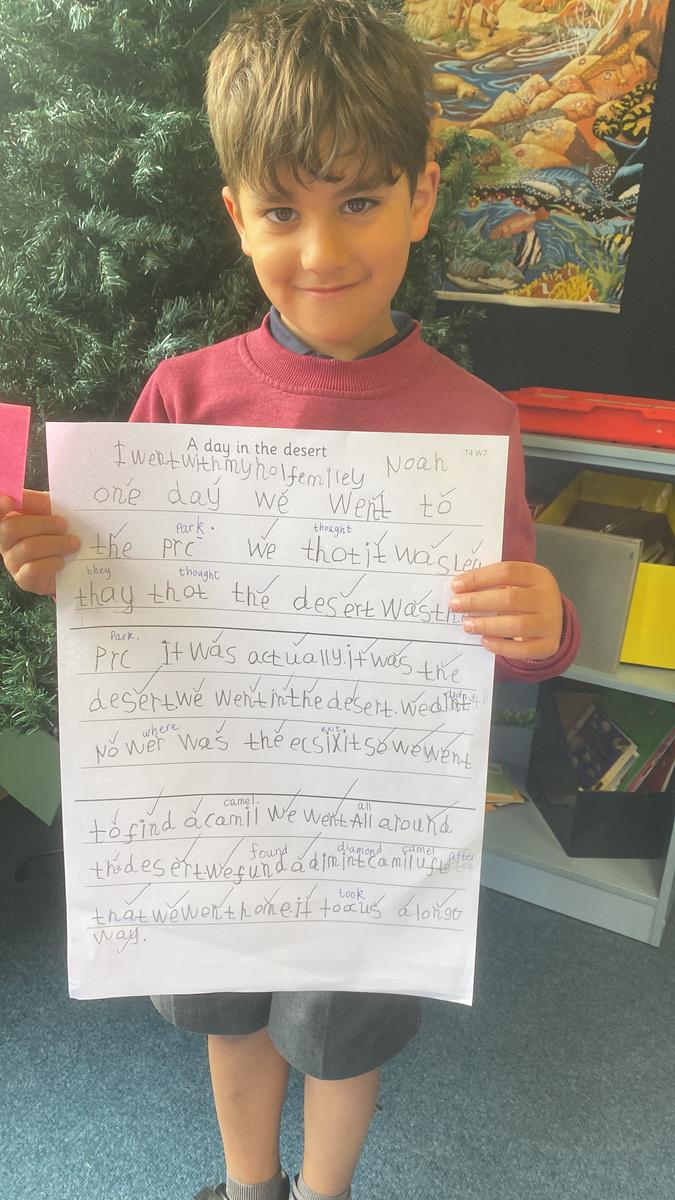 A day in the desert T4 W7
I went with my hol femiley Noah
one day we went to
park. thought
the prc we thot it was
they thought
thay thot the desert was
Park.
prc it was actually. it was the
desert. we went in the desert. we
where exit.
No wer was the ecsixit so we went
camel. all
to find a camil we went All around
found diamond camel after
the desert. we fund a dimint camil uft
took
that we went home. it toocus a long
way.